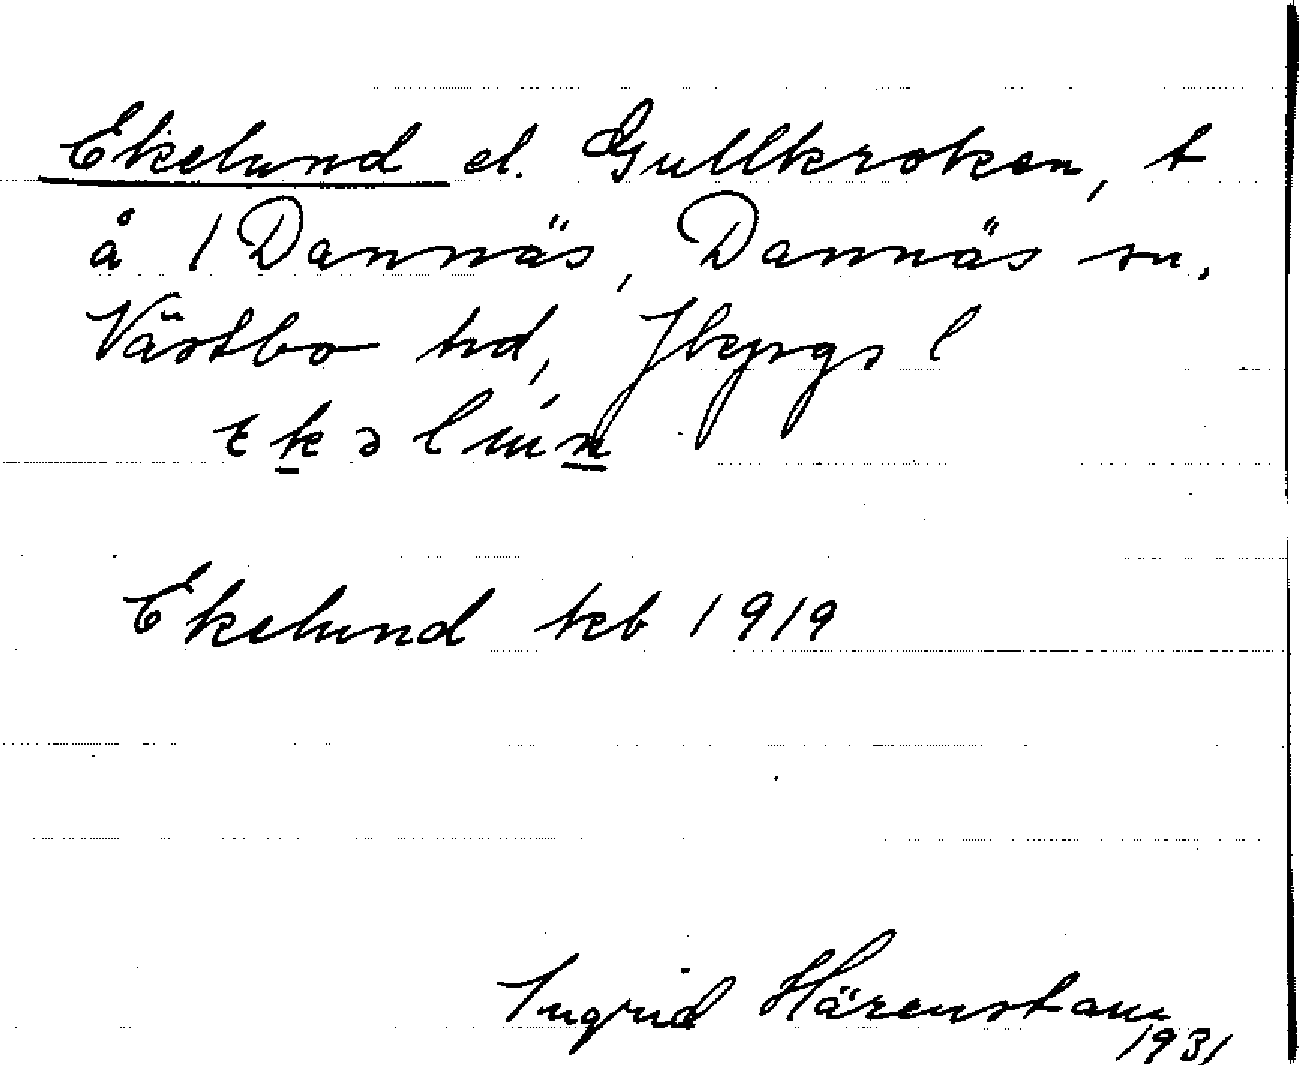 Ekelund el. Gullkroken, t
å 1 Dannäs, Dannäs sn,
Västbo hd, Jkpgs l
Ekelund kb 1919
Ingrid Härenstam
1931